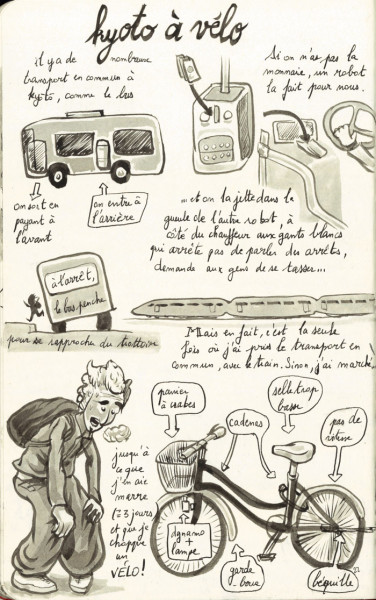 kyoto à vélo
il y a de nombreux
transport en commun à
kyoto, comme le bus
Si on n'a pas la
monnaie, un robot
la fait pour nous.
on sort en
payant à
l'avant
on entre à
l'arrière
...et on la jette dans la
gueule de l'autre robot, à
côté du chauffeur aux gants blancs
qui arrête pas de parler des arrêts,
demande aux gens de se tasser...
à l'arrêt,
le bus penche
pour se rapprocher du trottoir
Mais en fait, c'est la seule
fois où j'ai pris le transport en
commun, avec le train. Sinon, j'ai marché
jusqu'à
ce que
j'en aie
marre
(≈ 3 jours)
et que je
choppe
un
VÉLO!
panier
à crabes
cadenas
selle trop
basse
pas de
vitesse
dynamo
+
lampe
garde
boue
béquille